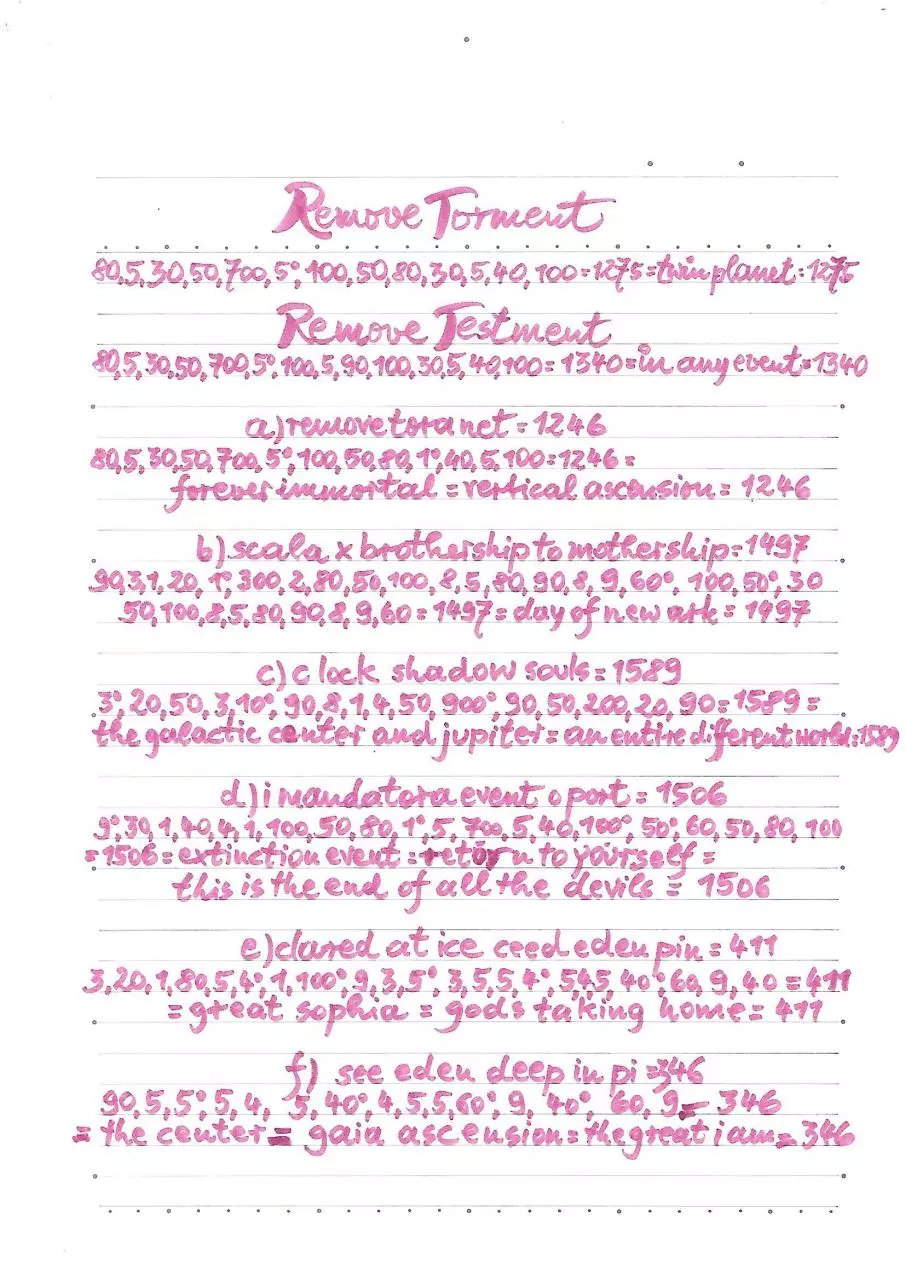 Remove Torment
80,5,30,50,700,5°,100,50,80,30,5,40,100=1275=twin planet=1275
Remove Testment
80,5,30,50,700,5°,100,5,90,100,30,5,40,100=1340=in any event=1340
a)remove tora net=1246
80,5,30,50,700,5°,100,50,80,1°,40,5,100=1246=
forever immortal=vertical ascension=1246
b)scala x brothership to mothership=1497
90,3,1,20,1°,300,2,80,50,100,8,5,80,90,8,9,60°,100,50°,30
50,100,8,5,80,90,8,9,60=1497=day of new ark=1497
c)clock shadow souls=1589
3°,20,50,3,10°,90,8,1,4,50,900°,90,50,200,20,90=1589=
the galactic center and jupiter=an entire different world=1589
d)i mandatora event o port=1506
9°,30,1,40,4,1,100,50,80,1°,5,700,5,40,100°,50°,60,50,80,100
=1506=extinction event=return to yourself=
this is the end of all the devils=1506
e)clared at ice ceed eden pin=411
3,20,1,80,5,4°,1,100°,9,3,5°,3,5,5,4°,5,4,5,40°,60,9,40=411
=great sophia=gods taking home=411
f) see eden deep in pi=346
90,5,5°,5,4,5,40°,4,5,5,60°,9,40°,60,9=346
=the center=gaia ascension=the great i am=346